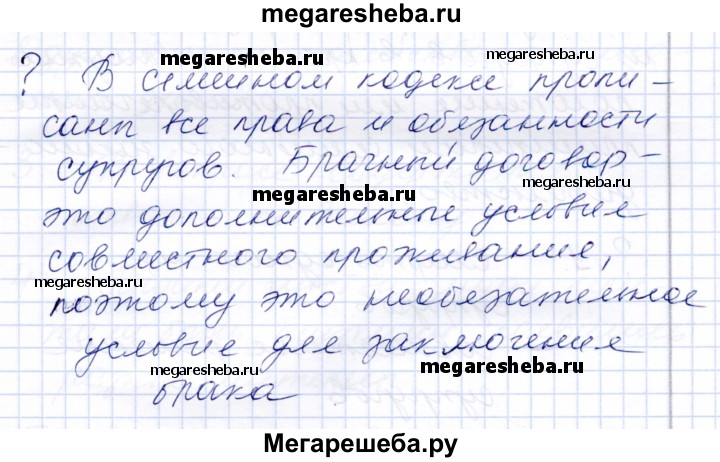 megaresheba.ru
megaresheba.ru megaresheba.ru
? В семейном кодексе пропи-
саны все права и обязанности
супругов. Брачный договор-
megaresheba.ru megaresheba.ru
это дополнительные условие
совместного проживания,
megaresheba.ru
поэтому это необязательное
условие для заключения
megaresheba.ru megaresheba.ru
брака
Мегарешеба.ру